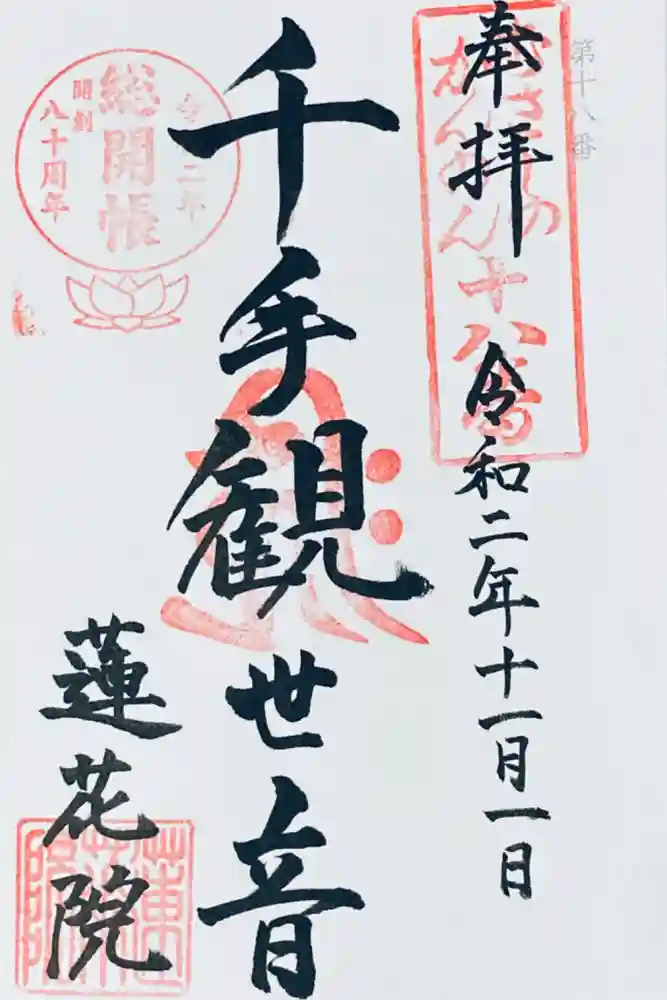 第十八番
奉拝
むさしの
かんのん
十八番
令和二年十一月一日
千手観世音
令和二年
総開帳
開創
八十周年
蓮花院
蓮花院